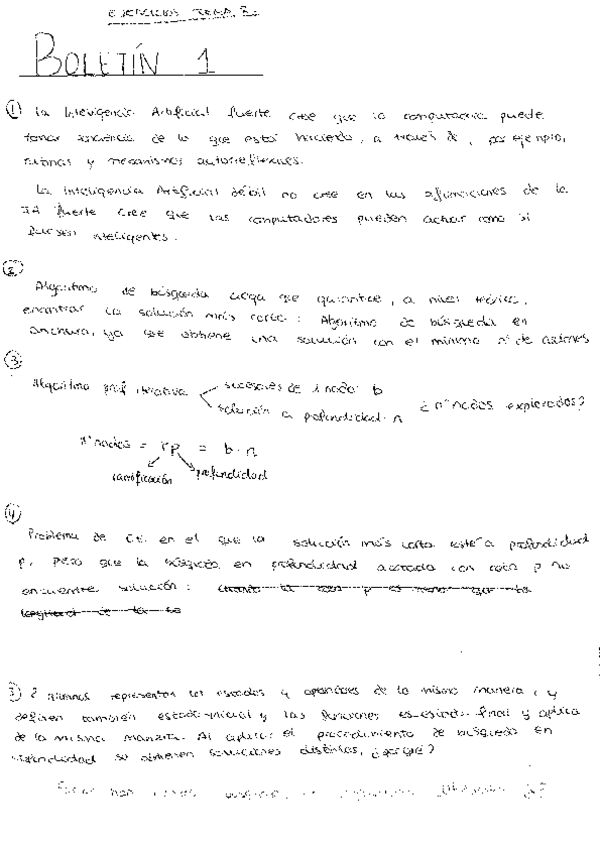 EJERCICIOS TEMA 2:
BOLETÍN 1
① La Inteligencia Artificial fuerte cree que la computadora puede
tomar conciencia de lo que está haciendo, a través de, por ejemplo,
rutinas y mecanismos autorreflexivos.
La Inteligencia Artificial débil no cree en las afirmaciones de la
IA fuerte cree que las computadores pueden actuar como si
fuesen inteligentes.
②
Algoritmo de búsqueda ciega que garantice, a nivel teórico,
encontrar la solución más corta: Algoritmo de búsqueda en
anchura, ya que obtiene una solución con el mínimo nº de acciones
③
Algoritmo prof iterativa sucesores de 1 nodo: b
solución a profundidad: n ¿nº nodos explorados?
Nº nodos = rp = b·n
ramificación profundidad
④
Problema de en el que la solución más corta esté a profundidad
p, pero que la búsqueda en profundidad acotada con cota p no
encuentre solución: cuando la cota p es
longitud de la
2 alumnos representan los estados y operadores de la misma manera, y
definen también estado-inicial y las funciones es-estado-final y aplica
de la misma manera. Al aplicar el procedimiento de búsqueda en
profundidad se obtienen soluciones distintas, ¿por qué?